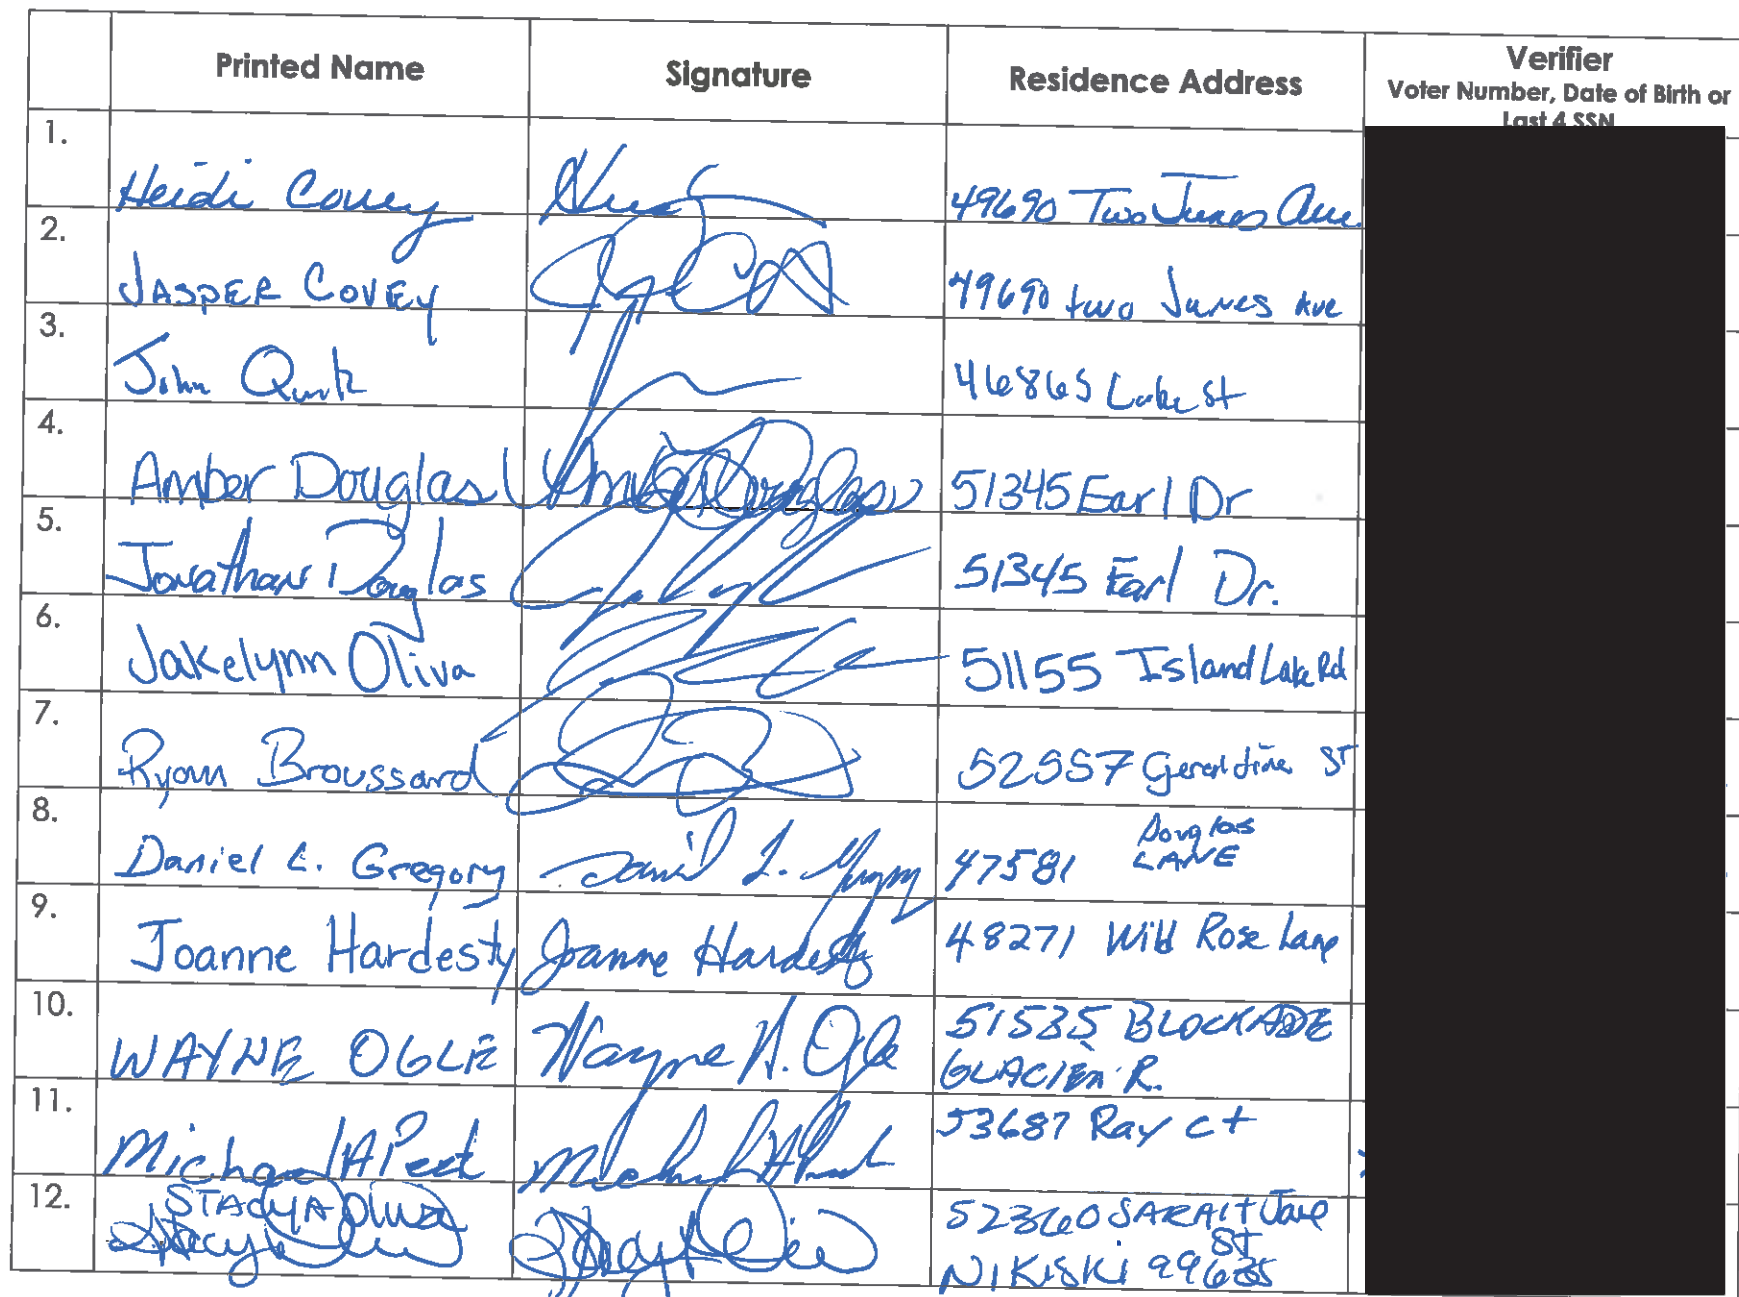 Printed Name
Signature
Residence Address
Verifier
Voter Number, Date of Birth or
Last 4 SSN
1.
Heidi Covey
49690 Two Junes Ave.
2.
JASPER COVEY
49690 two Junes Ave
3.
John Quirk
46865 Lake St
4.
Amber Douglas Amber Douglas
51345 Earl Dr
5.
Jonathan Douglas
51345 Earl Dr.
6.
Jakelynn Oliva
51155 Island Lake Rd
7.
Ryan Broussard
52557 Geraldine ST
8.
Daniel L. Gregory
Daniel L. Gregory
47581 Douglas
LANE
9.
Joanne Hardesty
Joanne Hardesty
48271 Wild Rose Lane
10.
WAYNE OGLE
Wayne H. Ogle
51535 BLOCKADE
GLACIER R.
11.
Michael A Peek
53687 Ray ct
12.
STACY A Oliva
52360 SARAH Jane
ST
NIKISKI 99635